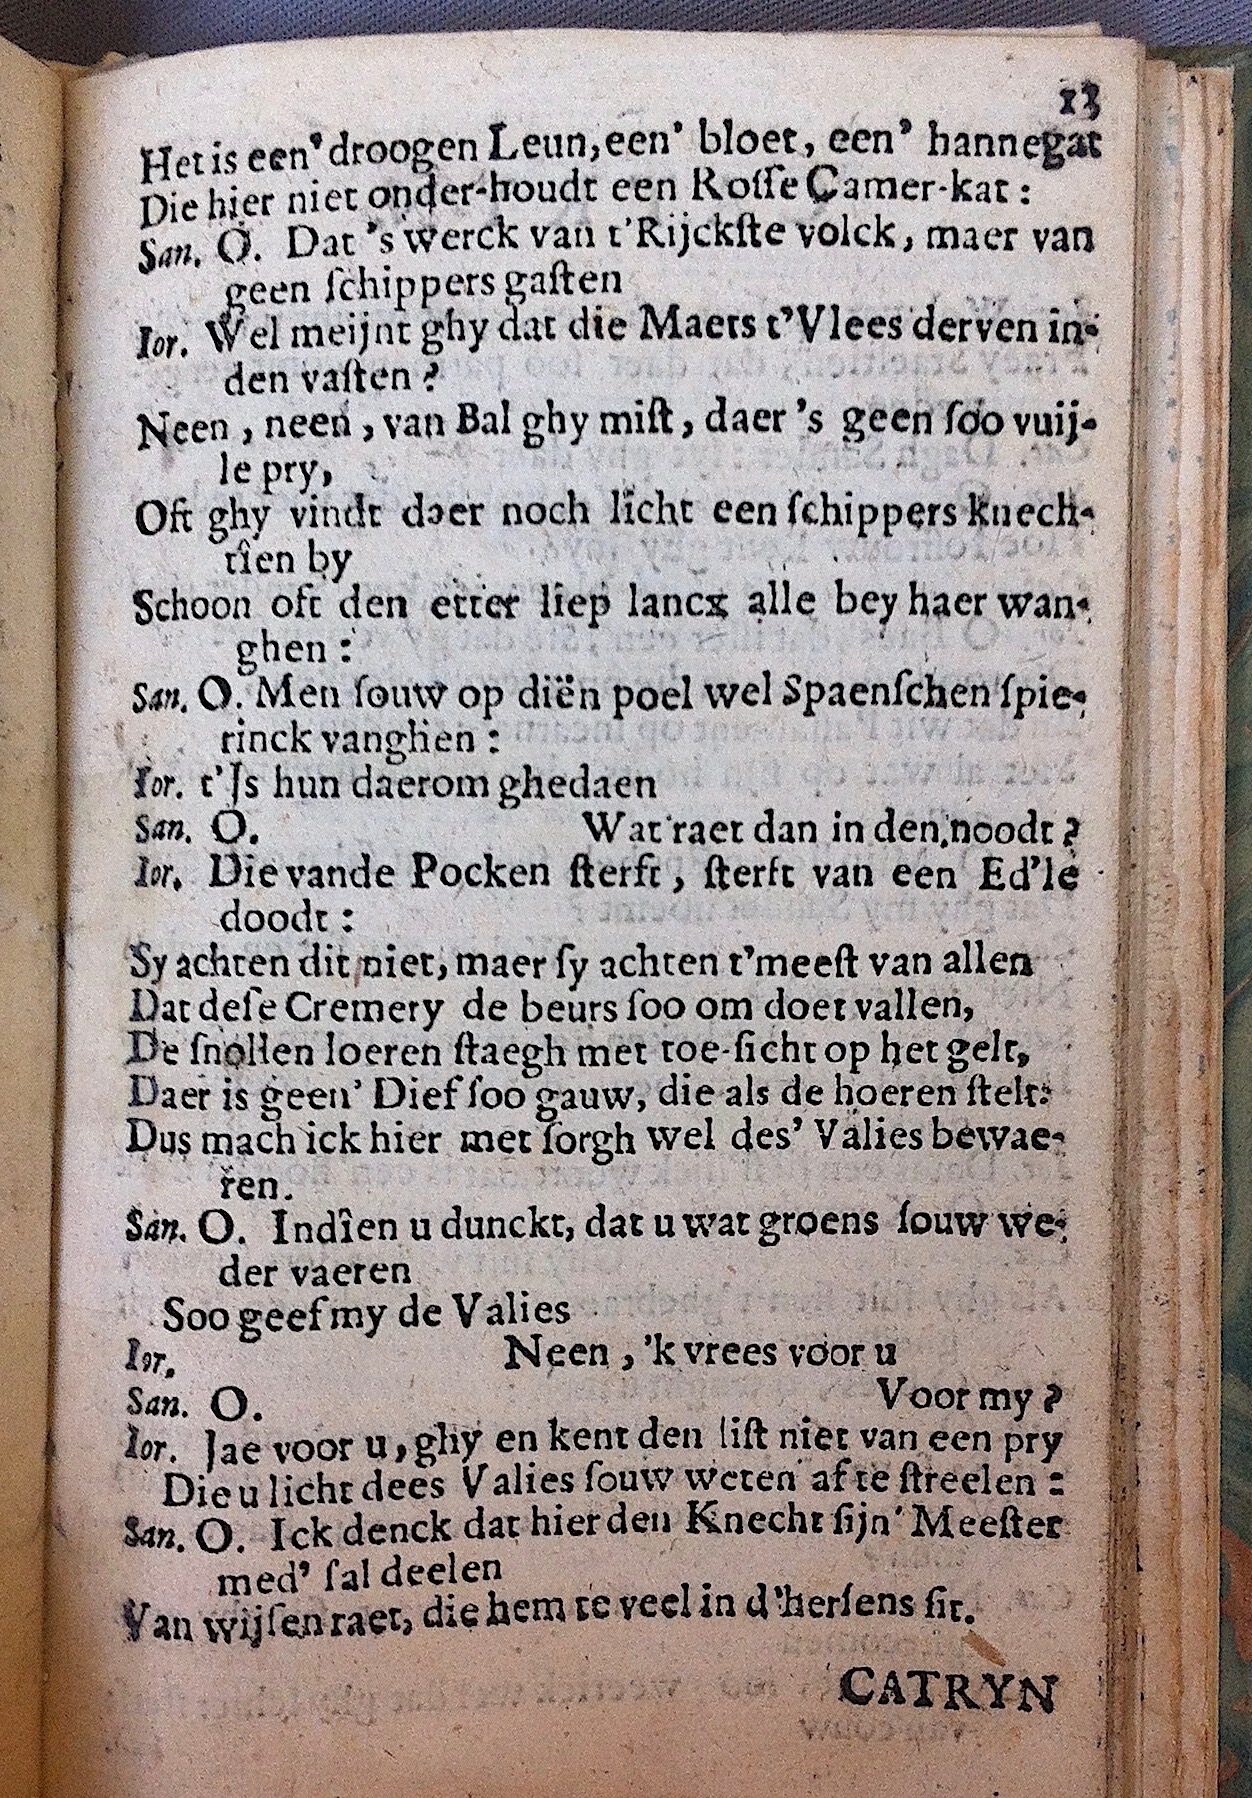 13
Het is een' droogen Leun, een' bloet, een' hannegat
Die hier niet onder-houdt een Rosſe Camer-kat:
San. O. Dat 's werck van t'Rijckſte volck, maer van
geen ſchippers gaſten
Ior. Wel meijnt ghy dat die Maets t'Vlees derven in-
den vaſten?
Neen, neen, van Bal ghy miſt, daer 's geen ſoo vuij-
le pry,
Oft ghy vindt daer noch licht een ſchippers knech-
tîen by
Schoon oft den etter lîep lancx alle bey haer wan-
ghen:
San. O. Men ſouw op diën poel wel Spaenſchen ſpie-
rinck vanghen:
Ior. t'Is hun daerom ghedaen
San. O. Wat raet dan in den noodt?
Ior. Die vande Pocken ſterft, ſterft van een Ed'le
doodt:
Sy achten dit niet, maer ſy achten t'meeſt van allen
Dat deſe Cremery de beurs ſoo om doet vallen,
De ſnollen loeren ſtaegh met toe-ſicht op het gelt,
Daer is geen' Dief ſoo gauw, die als de hoeren ſtelt:
Dus mach ick hier met ſorgh wel des' Valies bewae-
ren.
San. O. Indîen u dunckt, dat u wat groens ſouw we-
der vaeren
Soo geef my de Valies
Ior. Neen, 'k vrees voor u
San. O. Voor my?
Ior. Jae voor u, ghy en kent den liſt niet van een pry
Die u licht dees Valies ſouw weten af te ſtreelen:
San. O. Ick denck dat hier den Knecht ſijn' Meeſter
med' ſal deelen
Van wijſen raet, die hem te veel in d'herſens ſit.
CATRYN